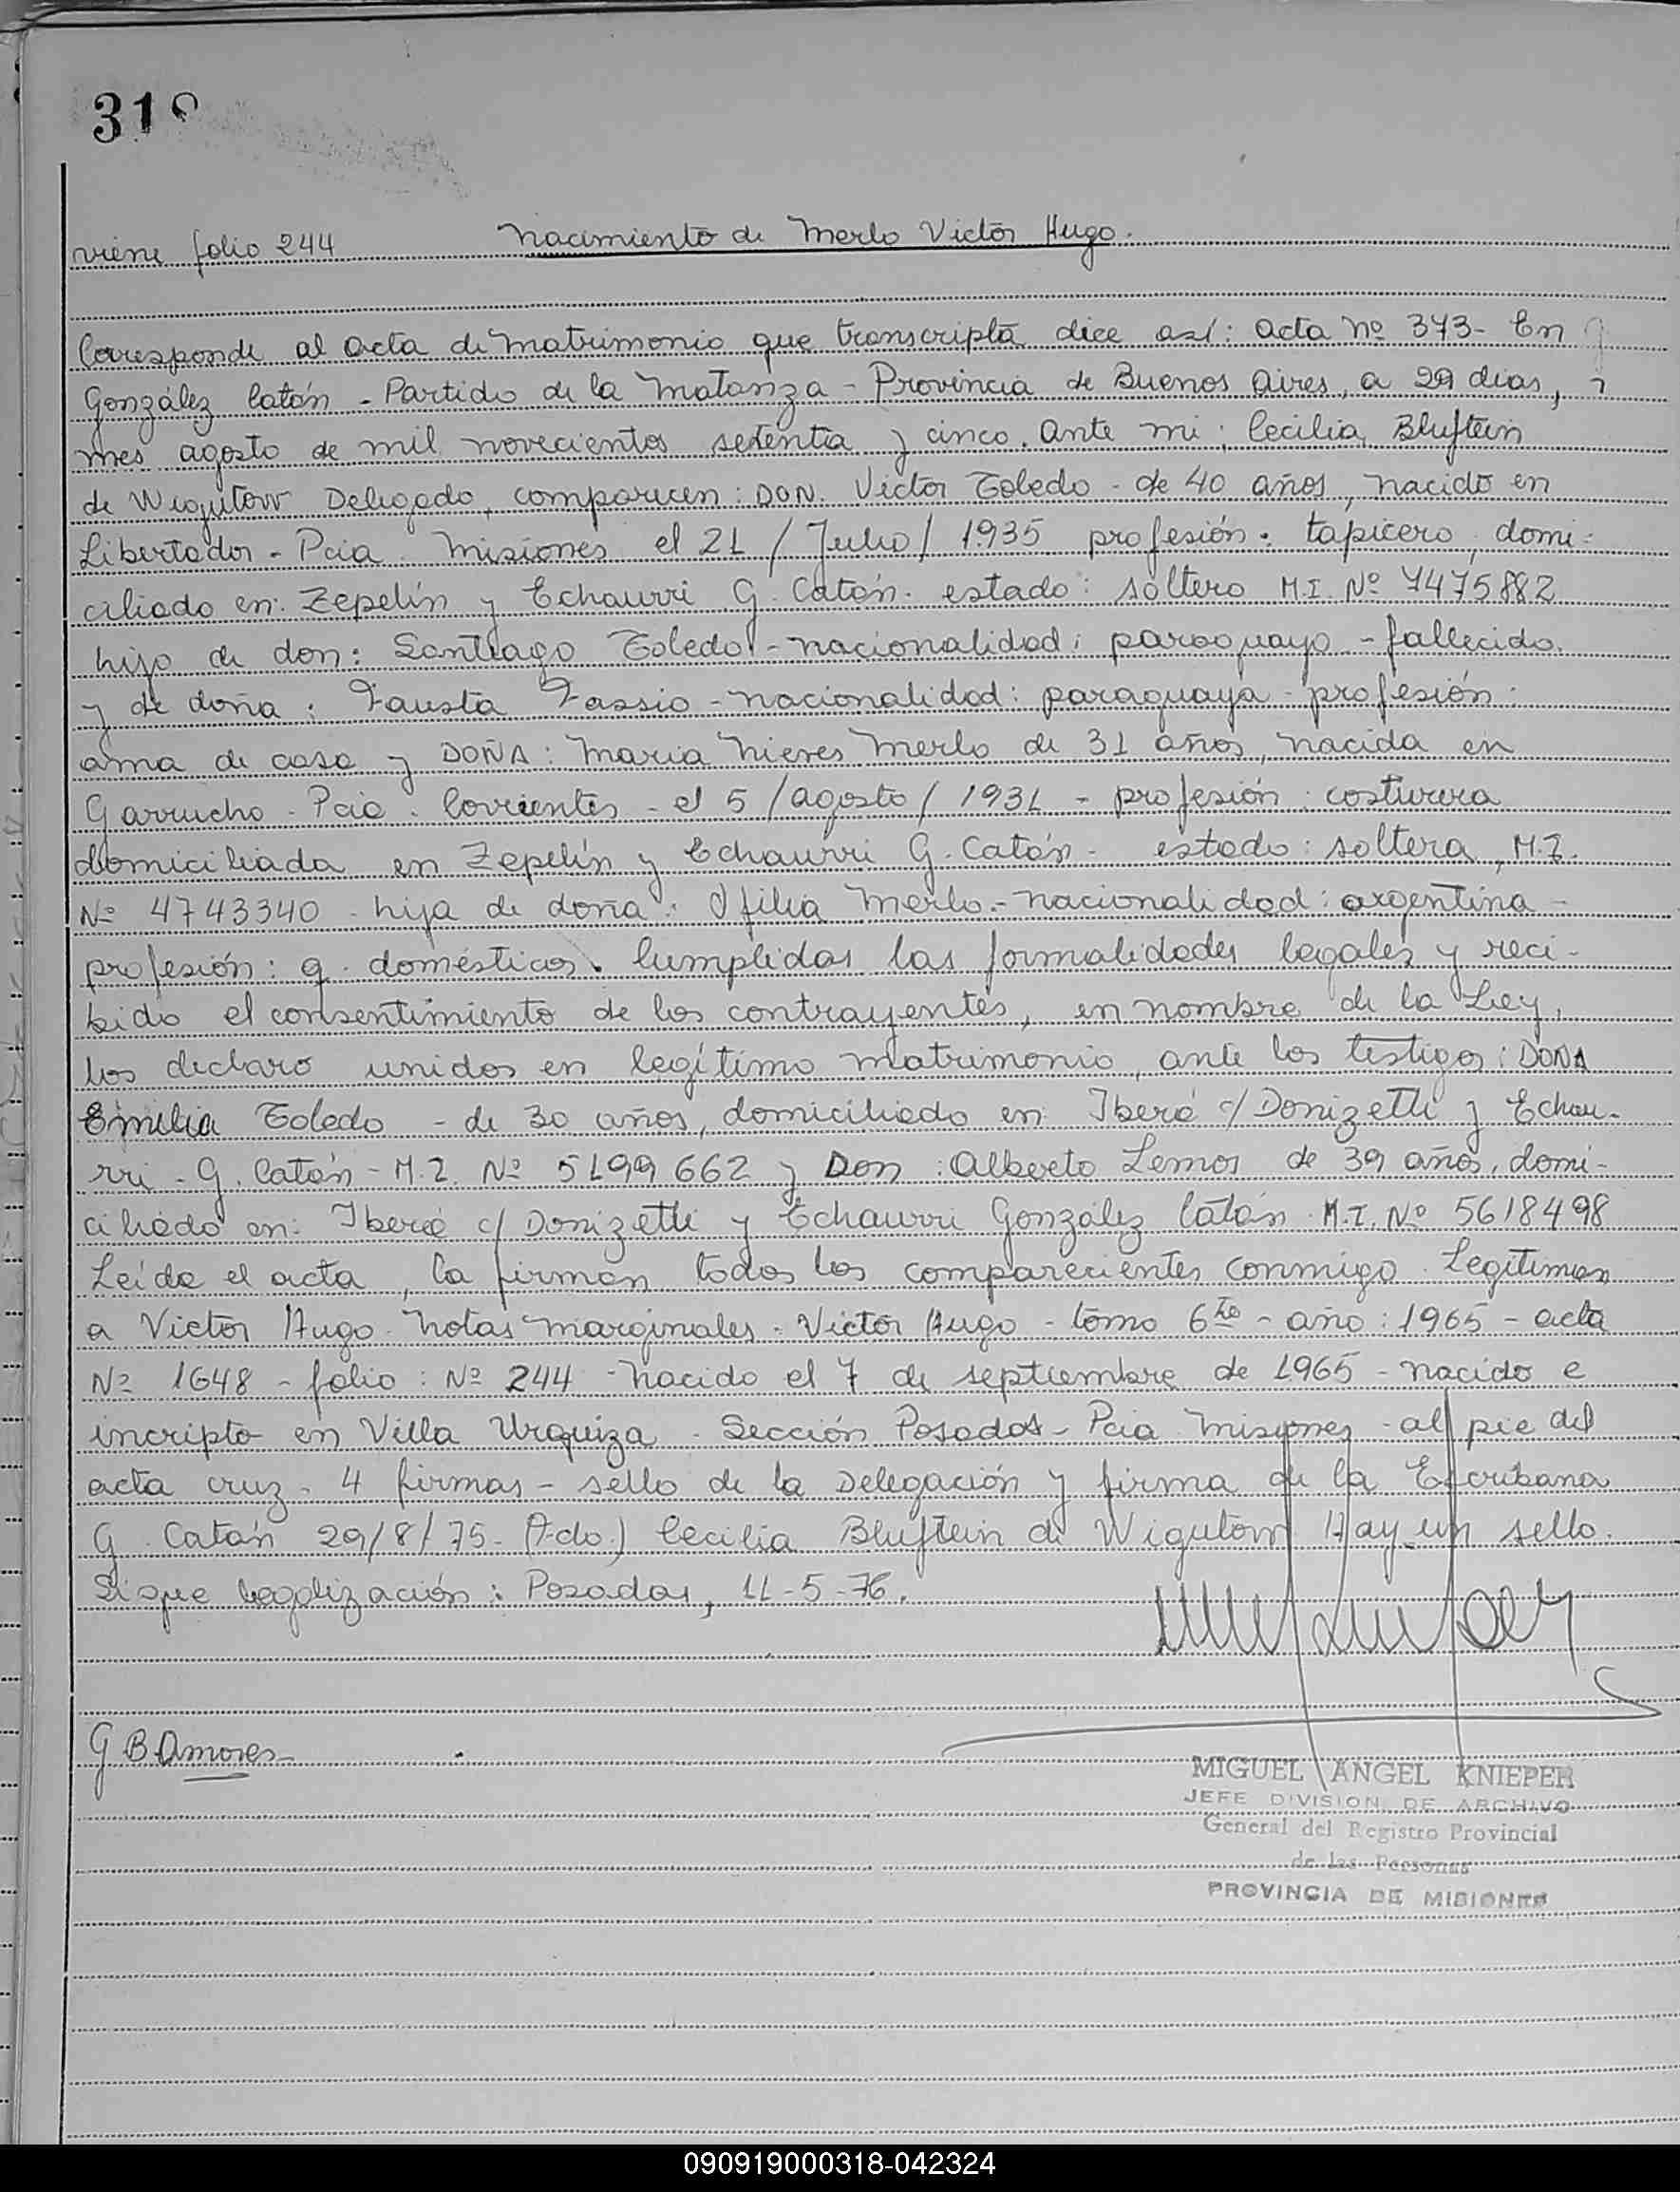 318
viene folio 244 Nacimiento de Merlo Victor Hugo.
Corresponde al acta de Matrimonio que transcripta dice así: acta Nº 373- En
González Catán - Partido de la Matanza - Provincia de Buenos Aires, a 29 dias,
mes agosto de mil novecientos setentia y cinco. Ante mi; Cecilia Bluftein
de Wigutow Delegado, comparecen: DON. Victor Toledo - de 40 años, nacido en
Libertador - Pcia. Misiones el 21 / Julio / 1935 profesión: tapicero, domi-
ciliado en: Zepelín y Echaurri G. Catán. estado: soltero M.I. Nº 7475882
hijo de don: Santiago Toledo - nacionalidad: paraguayo - fallecido.
y de doña: Fausta Fassio - nacionalidad: paraguaya - profesión:
ama de casa y DOÑA: Maria Nieves Merlo de 31 años, nacida en
Garrucho - Pcia. Corrientes - el 5 / agosto / 1931 - profesión: costurera
domiciliada en Zepelín y Echaurri G. Catán - estado: soltera, M.I.
Nº 4743340 - hija de doña: Ofilia Merlo. - nacionalidad: argentina -
profesión: q. domésticos. Cumplidas las formalidades legales y reci-
bido el consentimiento de los contrayentes, en nombre de la Ley,
los declaro unidos en legítimo matrimonio, ante los testigos: DOÑA
Emilia Toledo - de 30 años, domiciliado en: Iberá c/ Donizetti y Echau-
rri - G. Catán - M.I. Nº 5199662 y Don: Alberto Lemos de 39 años, domi-
ciliado en: Iberá c/ Donizetti y Echaurri González Catán. M.I. Nº 5618498
Leída el acta, la firman todos los comparecientes conmigo. Legitiman
a Victor Hugo. Notas Marginales. Victor Hugo - tomo 6to - año: 1965 - acta
Nº 1648 - folio: Nº 244 - nacido el 7 de septiembre de 1965 - nacido e
incripto en Villa Urquiza - Sección Posadas - Pcia Misiones - al pie del
acta cruz - 4 firmas - sello de la Delegación y firma de la Escribana
G. Catán 29/8/75 - (Fdo.) Cecilia Bluftein de Wigutow Hay un sello.
Sigue Legalización: Posadas, 11-5-76.
G B Amores
MIGUEL ANGEL KNIEPER
JEFE DIVISION DE ARCHIVO
General del Registro Provincial
de las Personas
PROVINCIA DE MISIONES
090919000318-042324